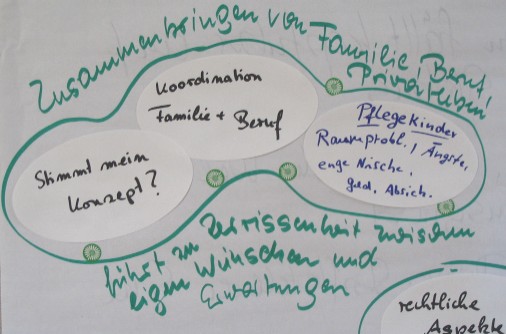 Zusammenbringen von Familie, Beruf,
Privatleben!
Koordination
Familie + Beruf
Stimmt mein
Konzept?
Pflegekinder
Raumprobl., Ängste,
enge Nische,
ged. Absich.
führt zu Zerrissenheit zwischen
eigen Wünschen und
Erwartungen
rechtliche
Aspekte